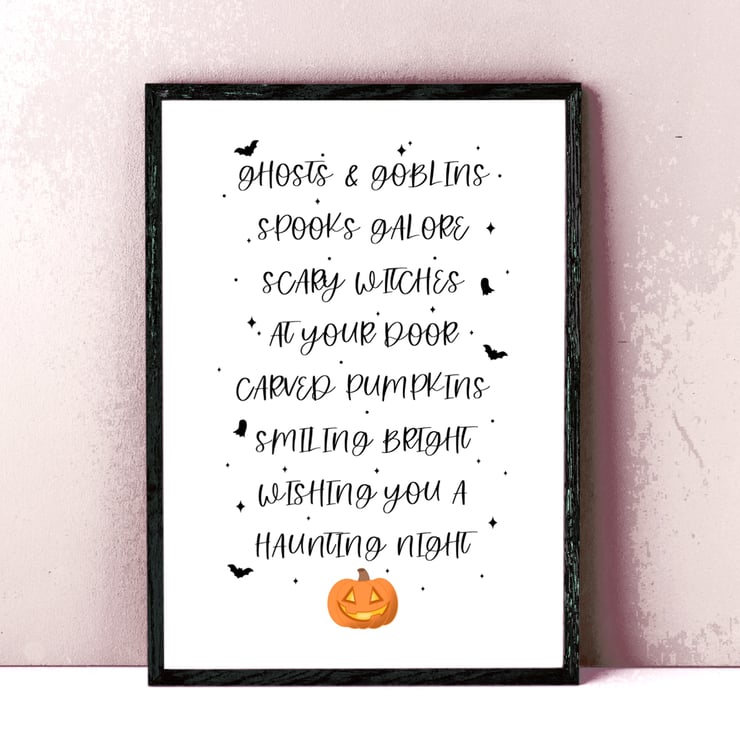 GHOSTS & GOBLINS
SPOOKS GALORE
SCARY WITCHES
AT YOUR DOOR
CARVED PUMPKINS
SMILING BRIGHT
WISHING YOU A
HAUNTING NIGHT